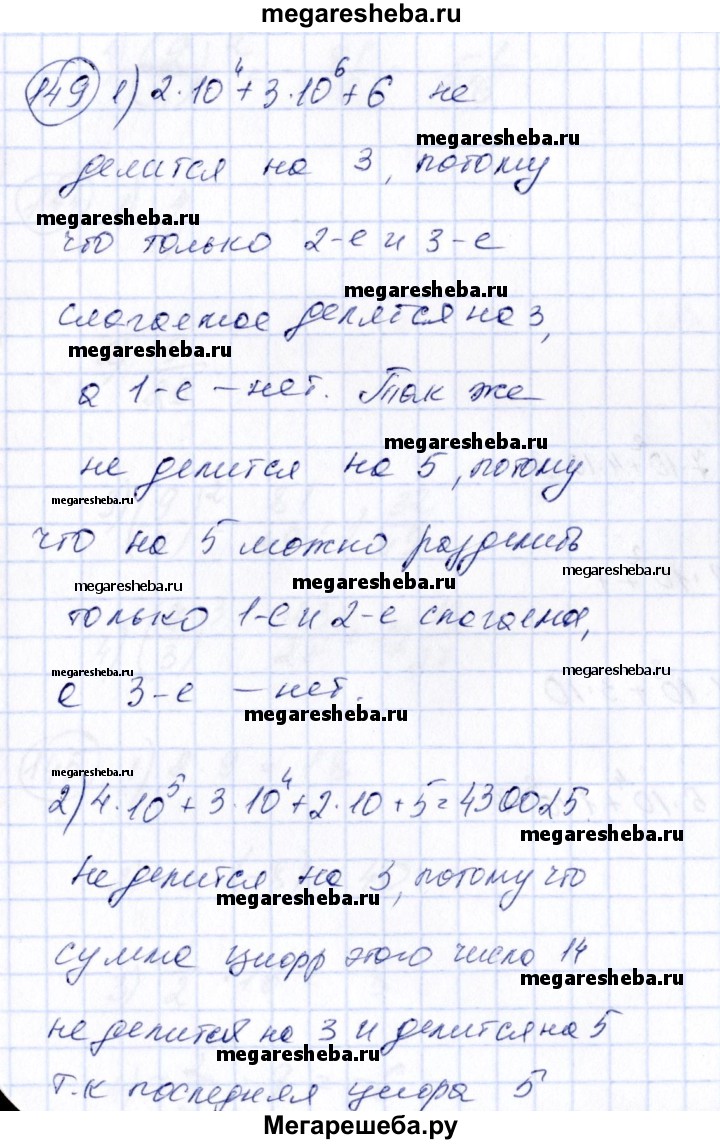 megaresheba.ru
149 1) 2·10⁴+3·10⁶+6 не
megaresheba.ru
делится на 3, потому
megaresheba.ru
что только 2-е и 3-е
megaresheba.ru
слагаемое делятся на 3,
megaresheba.ru
а 1-е – нет. Так же
megaresheba.ru
не делится на 5, потому
megaresheba.ru
что на 5 можно разделить
megaresheba.ru
megaresheba.ru
megaresheba.ru
только 1-е и 2-е слагаемая,
megaresheba.ru
megaresheba.ru
а 3-е – нет.
megaresheba.ru
megaresheba.ru
2) 4·10⁵+3·10⁴+2·10+5=430025.
megaresheba.ru
не делится на 3, потому что
megaresheba.ru
сумма цифр этого числа 14
megaresheba.ru
не делится на 3 и делится на 5
megaresheba.ru
т.к последняя цифра 5
Мегарешеба.ру